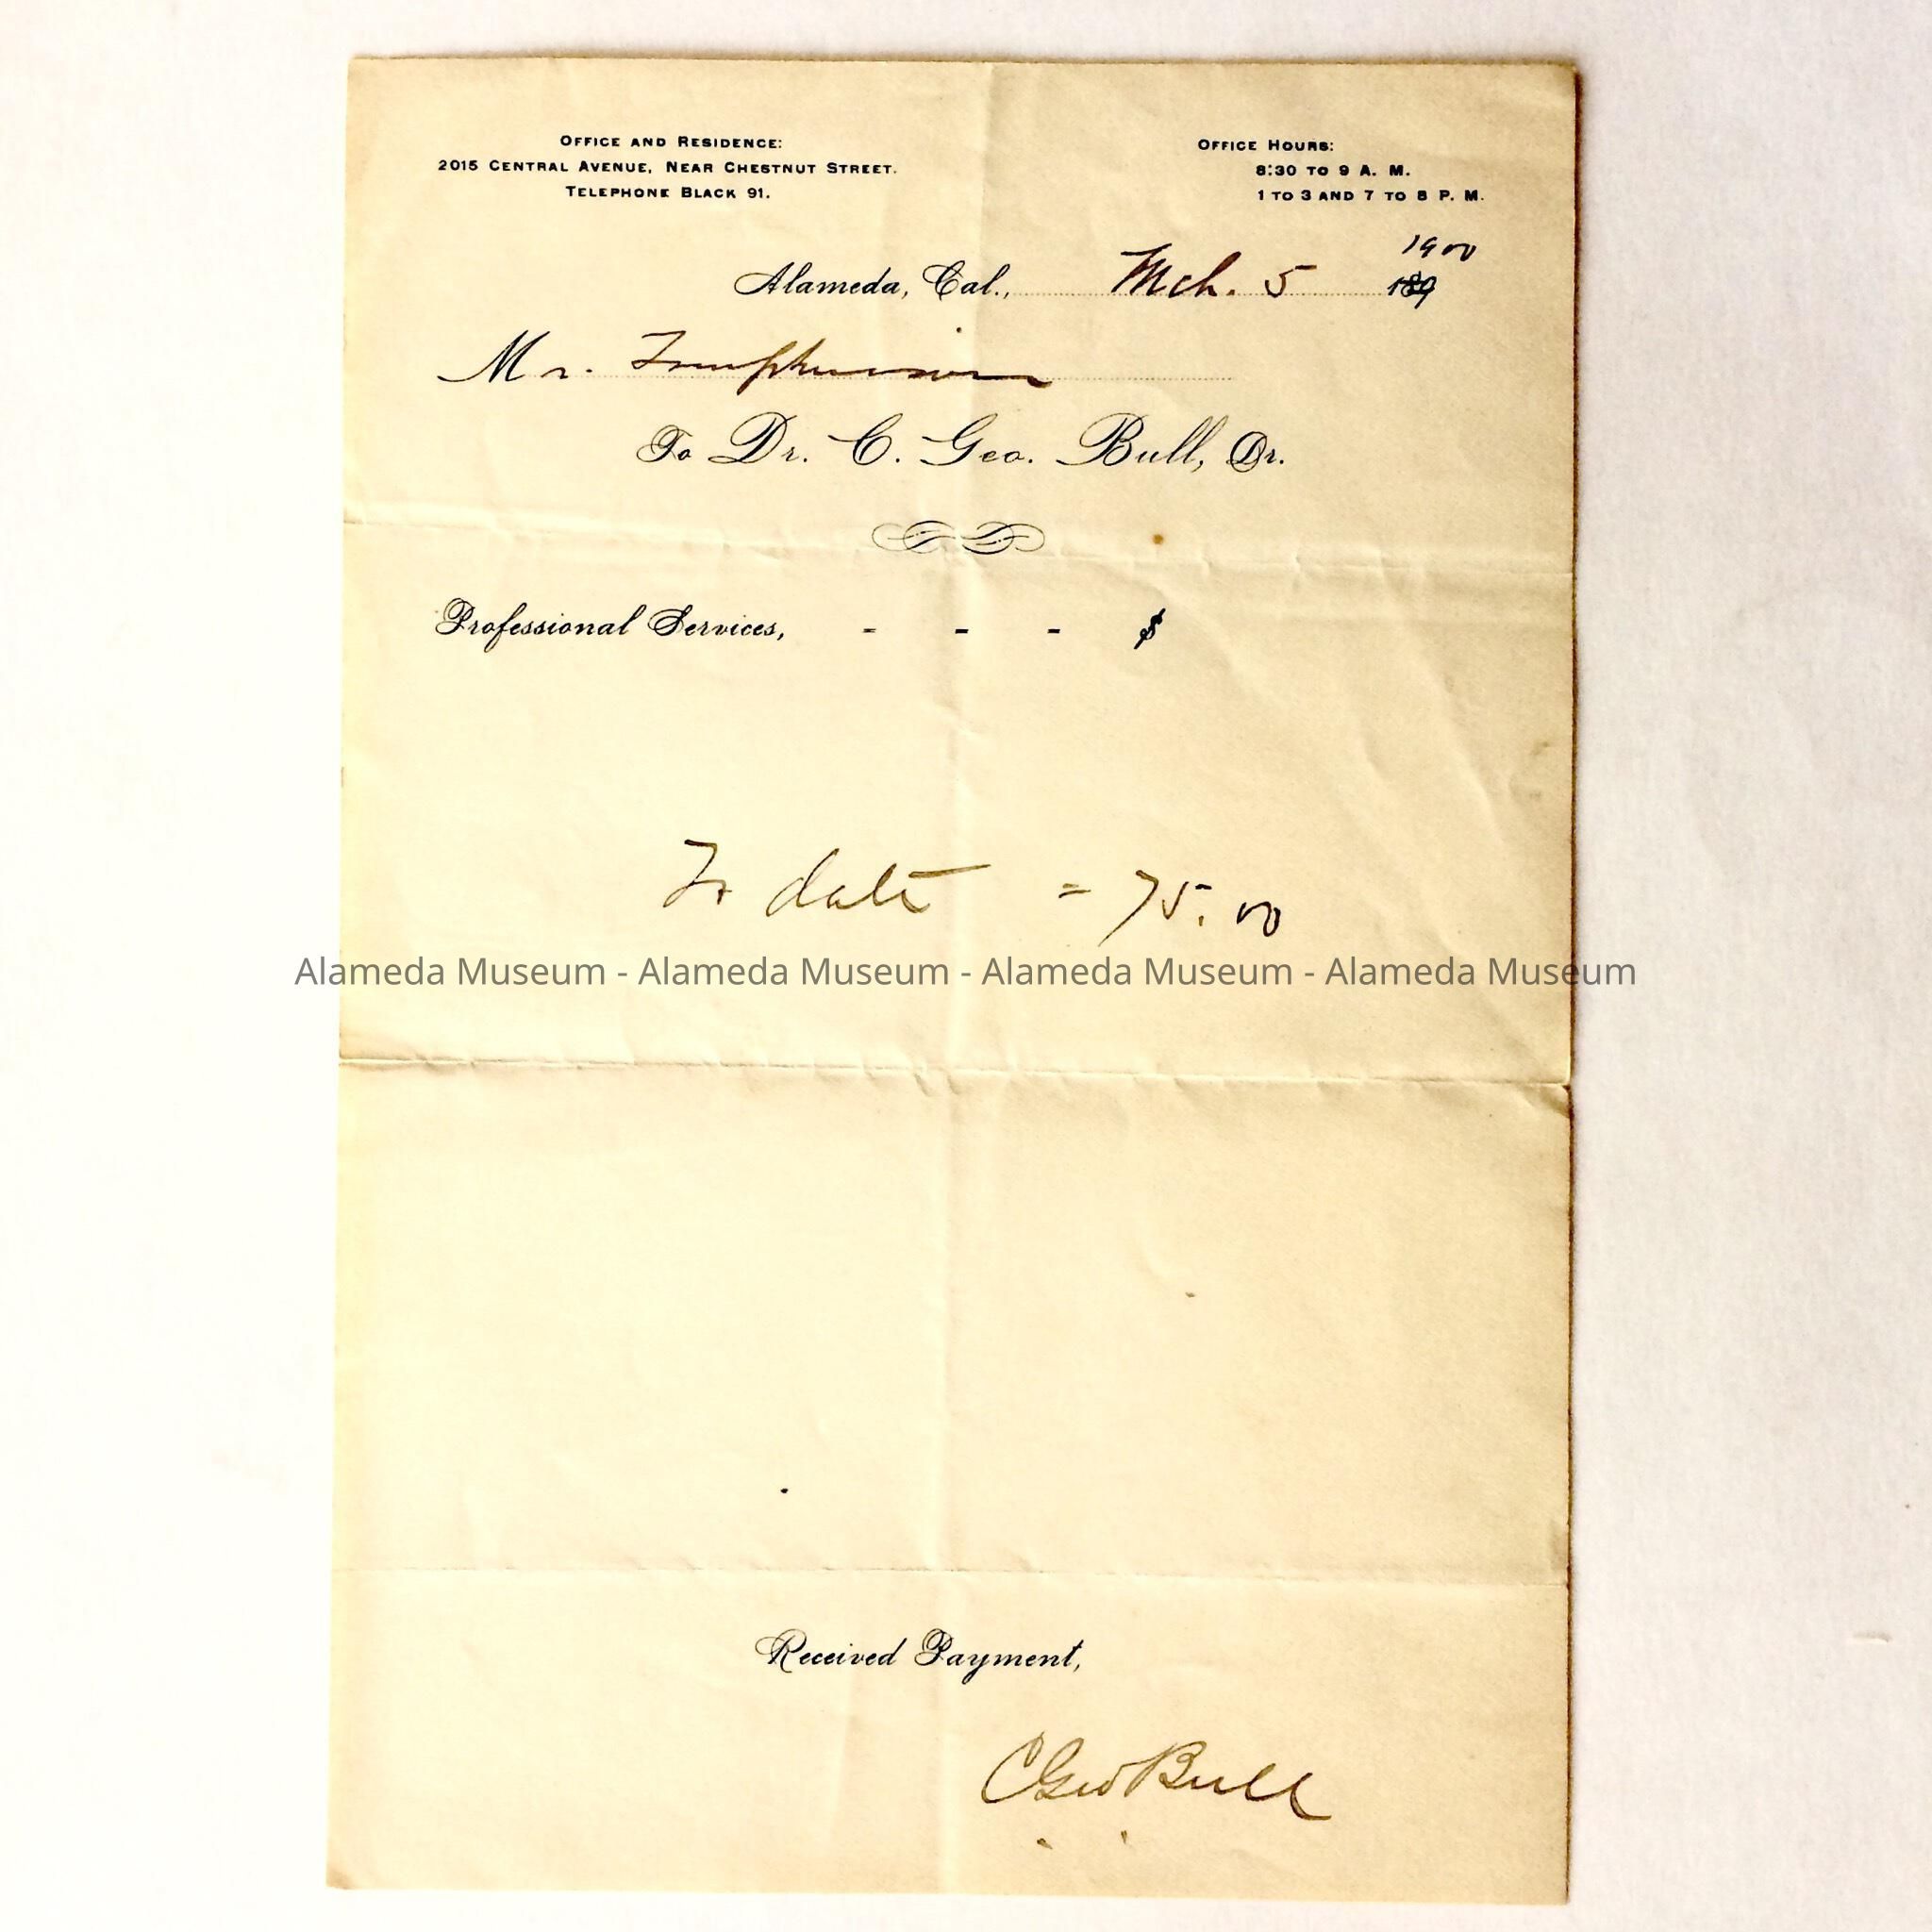 OFFICE AND RESIDENCE:
2015 CENTRAL AVENUE, NEAR CHESTNUT STREET.
TELEPHONE BLACK 91.
OFFICE HOURS:
8:30 TO 9 A. M.
1 TO 3 AND 7 TO 8 P. M.
1900
Alameda, Cal., Mch. 5 189
Mr.
To Dr. C. Geo. Bull, Dr.
Professional Services, - - - $
To date = 75.00
Alameda Museum - Alameda Museum - Alameda Museum - Alameda Museum
Received Payment,
C Geo Bull